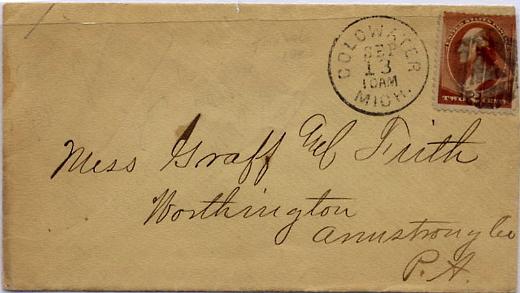 COLDWATER
SEP
13
10AM
MICH.
TWO CENTS
Mess Graff
Worthington
Armstrong Co
P.A.